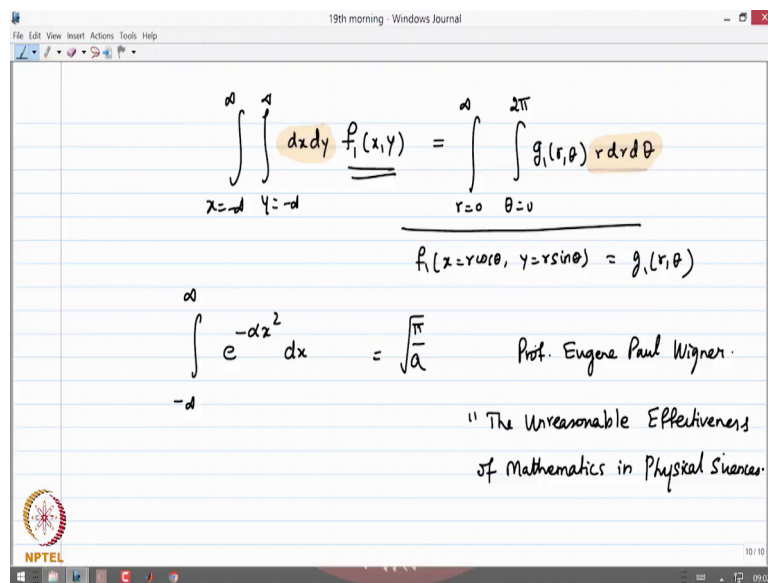 19th morning - Windows Journal
File Edit View Insert Actions Tools Help
∫_{x=-∞}^{∞} ∫_{y=-∞}^{∞} dxdy f₁(x,y) = ∫_{r=0}^{∞} ∫_{θ=0}^{2π} g₁(r,θ) rdrdθ
f₁(x=rcosθ, y=rsinθ) = g₁(r,θ)
∫_{-∞}^{∞} e^{-αx²} dx = √(π/a) Prof. Eugene Paul Wigner.
"The Unreasonable Effectiveness
of Mathematics in Physical Sciences.
NPTEL
10/10